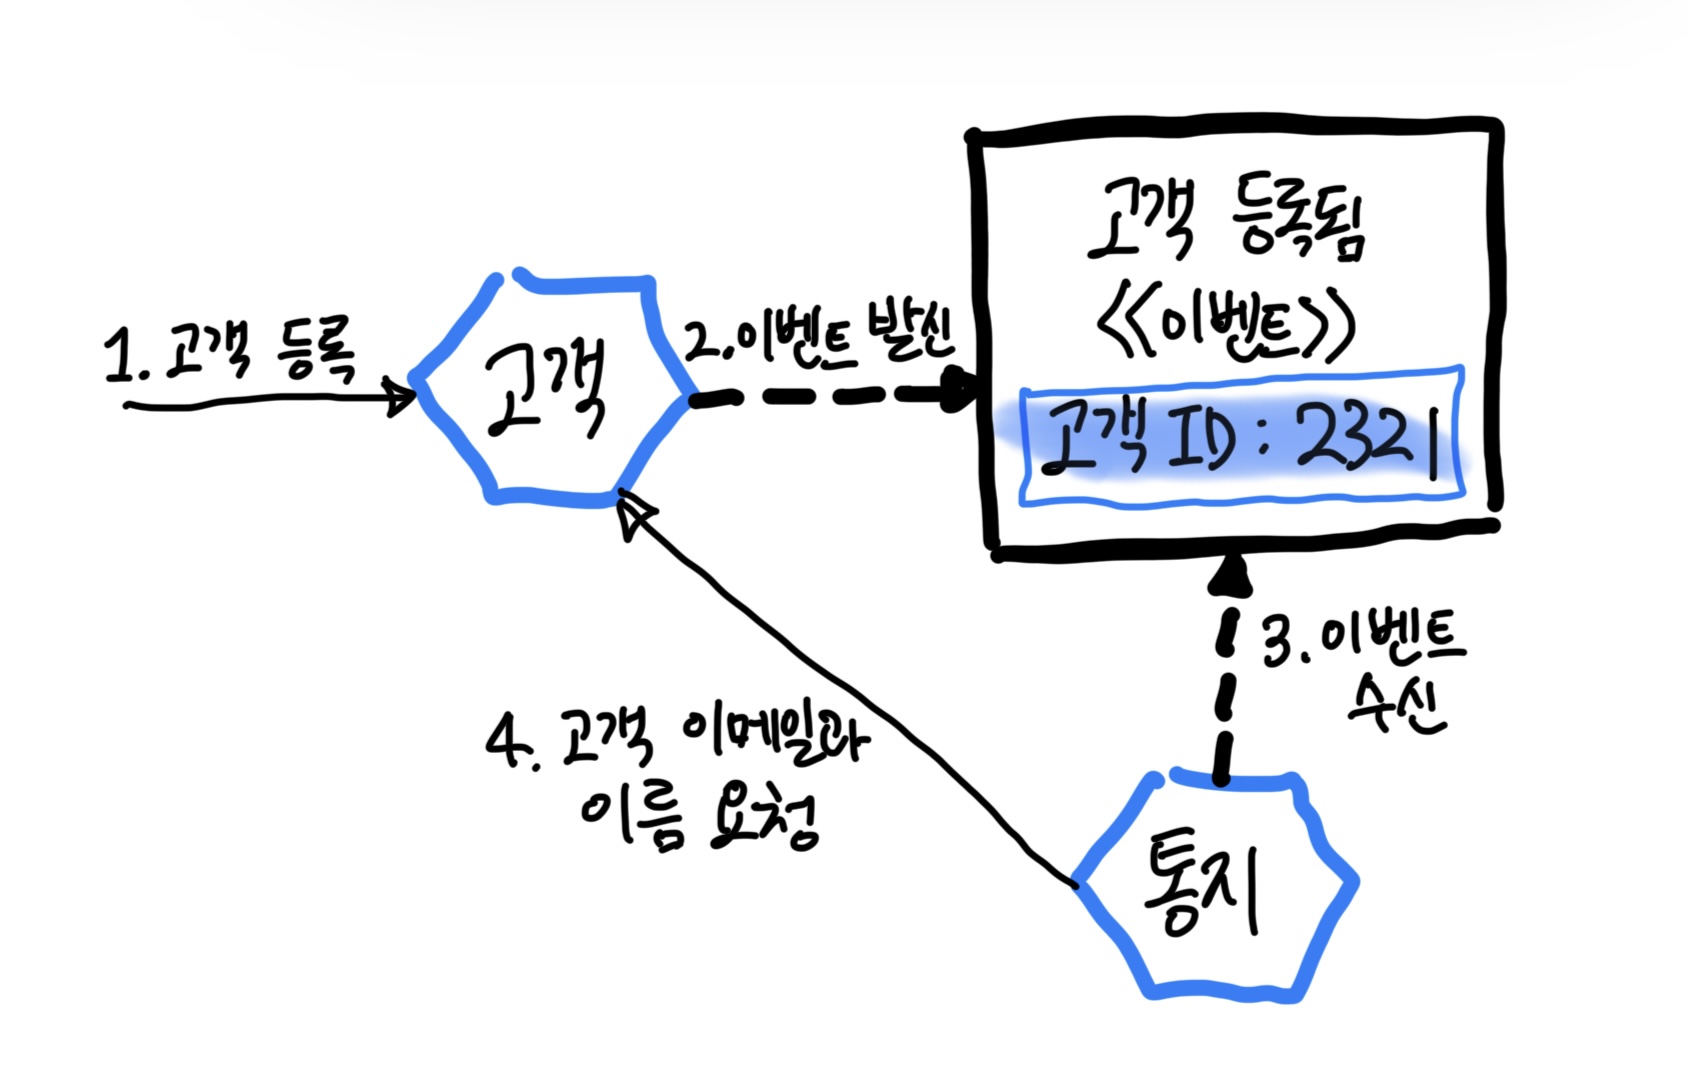 1. 고객 등록
고객
2. 이벤트 발신
고객 등록됨
<<이벤트>>
고객 ID : 2321
3. 이벤트
수신
4. 고객 이메일과
이름 요청
통지